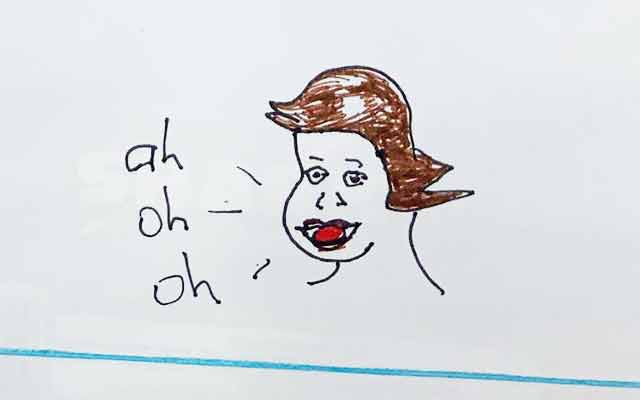 ah
oh
oh